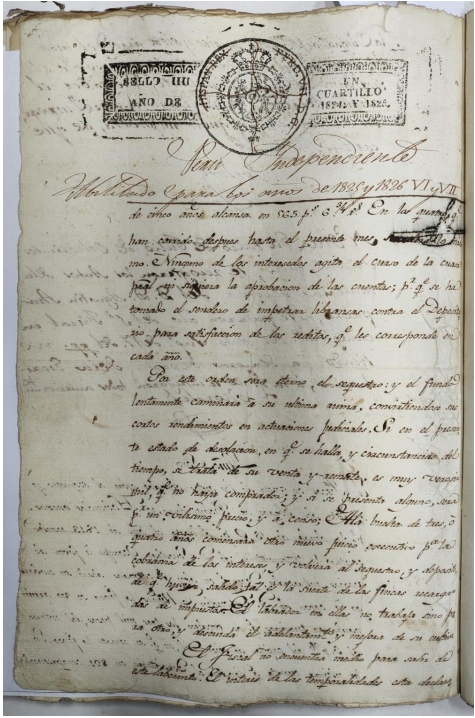 SELLO IIII
AÑO DE
UN
CUARTILLO
1824 Y 1825.
Perú Independiente
Abilitado para los años de 1825 y 1826 VI y VII
de cinco años alcansa en 565 p.s En los quatro q.e
han corrido despues hasta el presente mes,
mo. Ninguno de los interesados agita el curso de la causa
pral, ni quiere la aprobacion de las cuentas; p.r q.e se ha
tomado el sendero de impetrar libransas contra el Deposita
rio para satisfaccion de los reditos, q.e les corresponde en
cada año.
Por este orden sera eterno el sequestro: y el fundo
lentamente caminará a su ultima ruina, convirtiendose sus
cortos rendimientos en actuaciones judiciales. Si en el presen
te estado de desolacion, en q.e se halla, y circunstancias del
tiempo, se trata de su venta y remate, es muy verosi
mil, q.e no haya comprador; y si se presenta alguno, será
p.r un vilisimo precio, y a censo; A la buelta de tres, o
quatro años comensará otro nuevo juicio executivo p.a la
cobransa de los intereses y volverá al sequestro, y deposito
de q.e huviese salido. Tal es la suerte de las fincas recarga
das de impuestos. El labrador en ellas no trabaja sino pa
ra otro, y descuida el adelantam.to y mejora de su cultivo.
El Fiscal no encuentra medio para salir de
este laberinto. El interes de las temporalidades esta declara